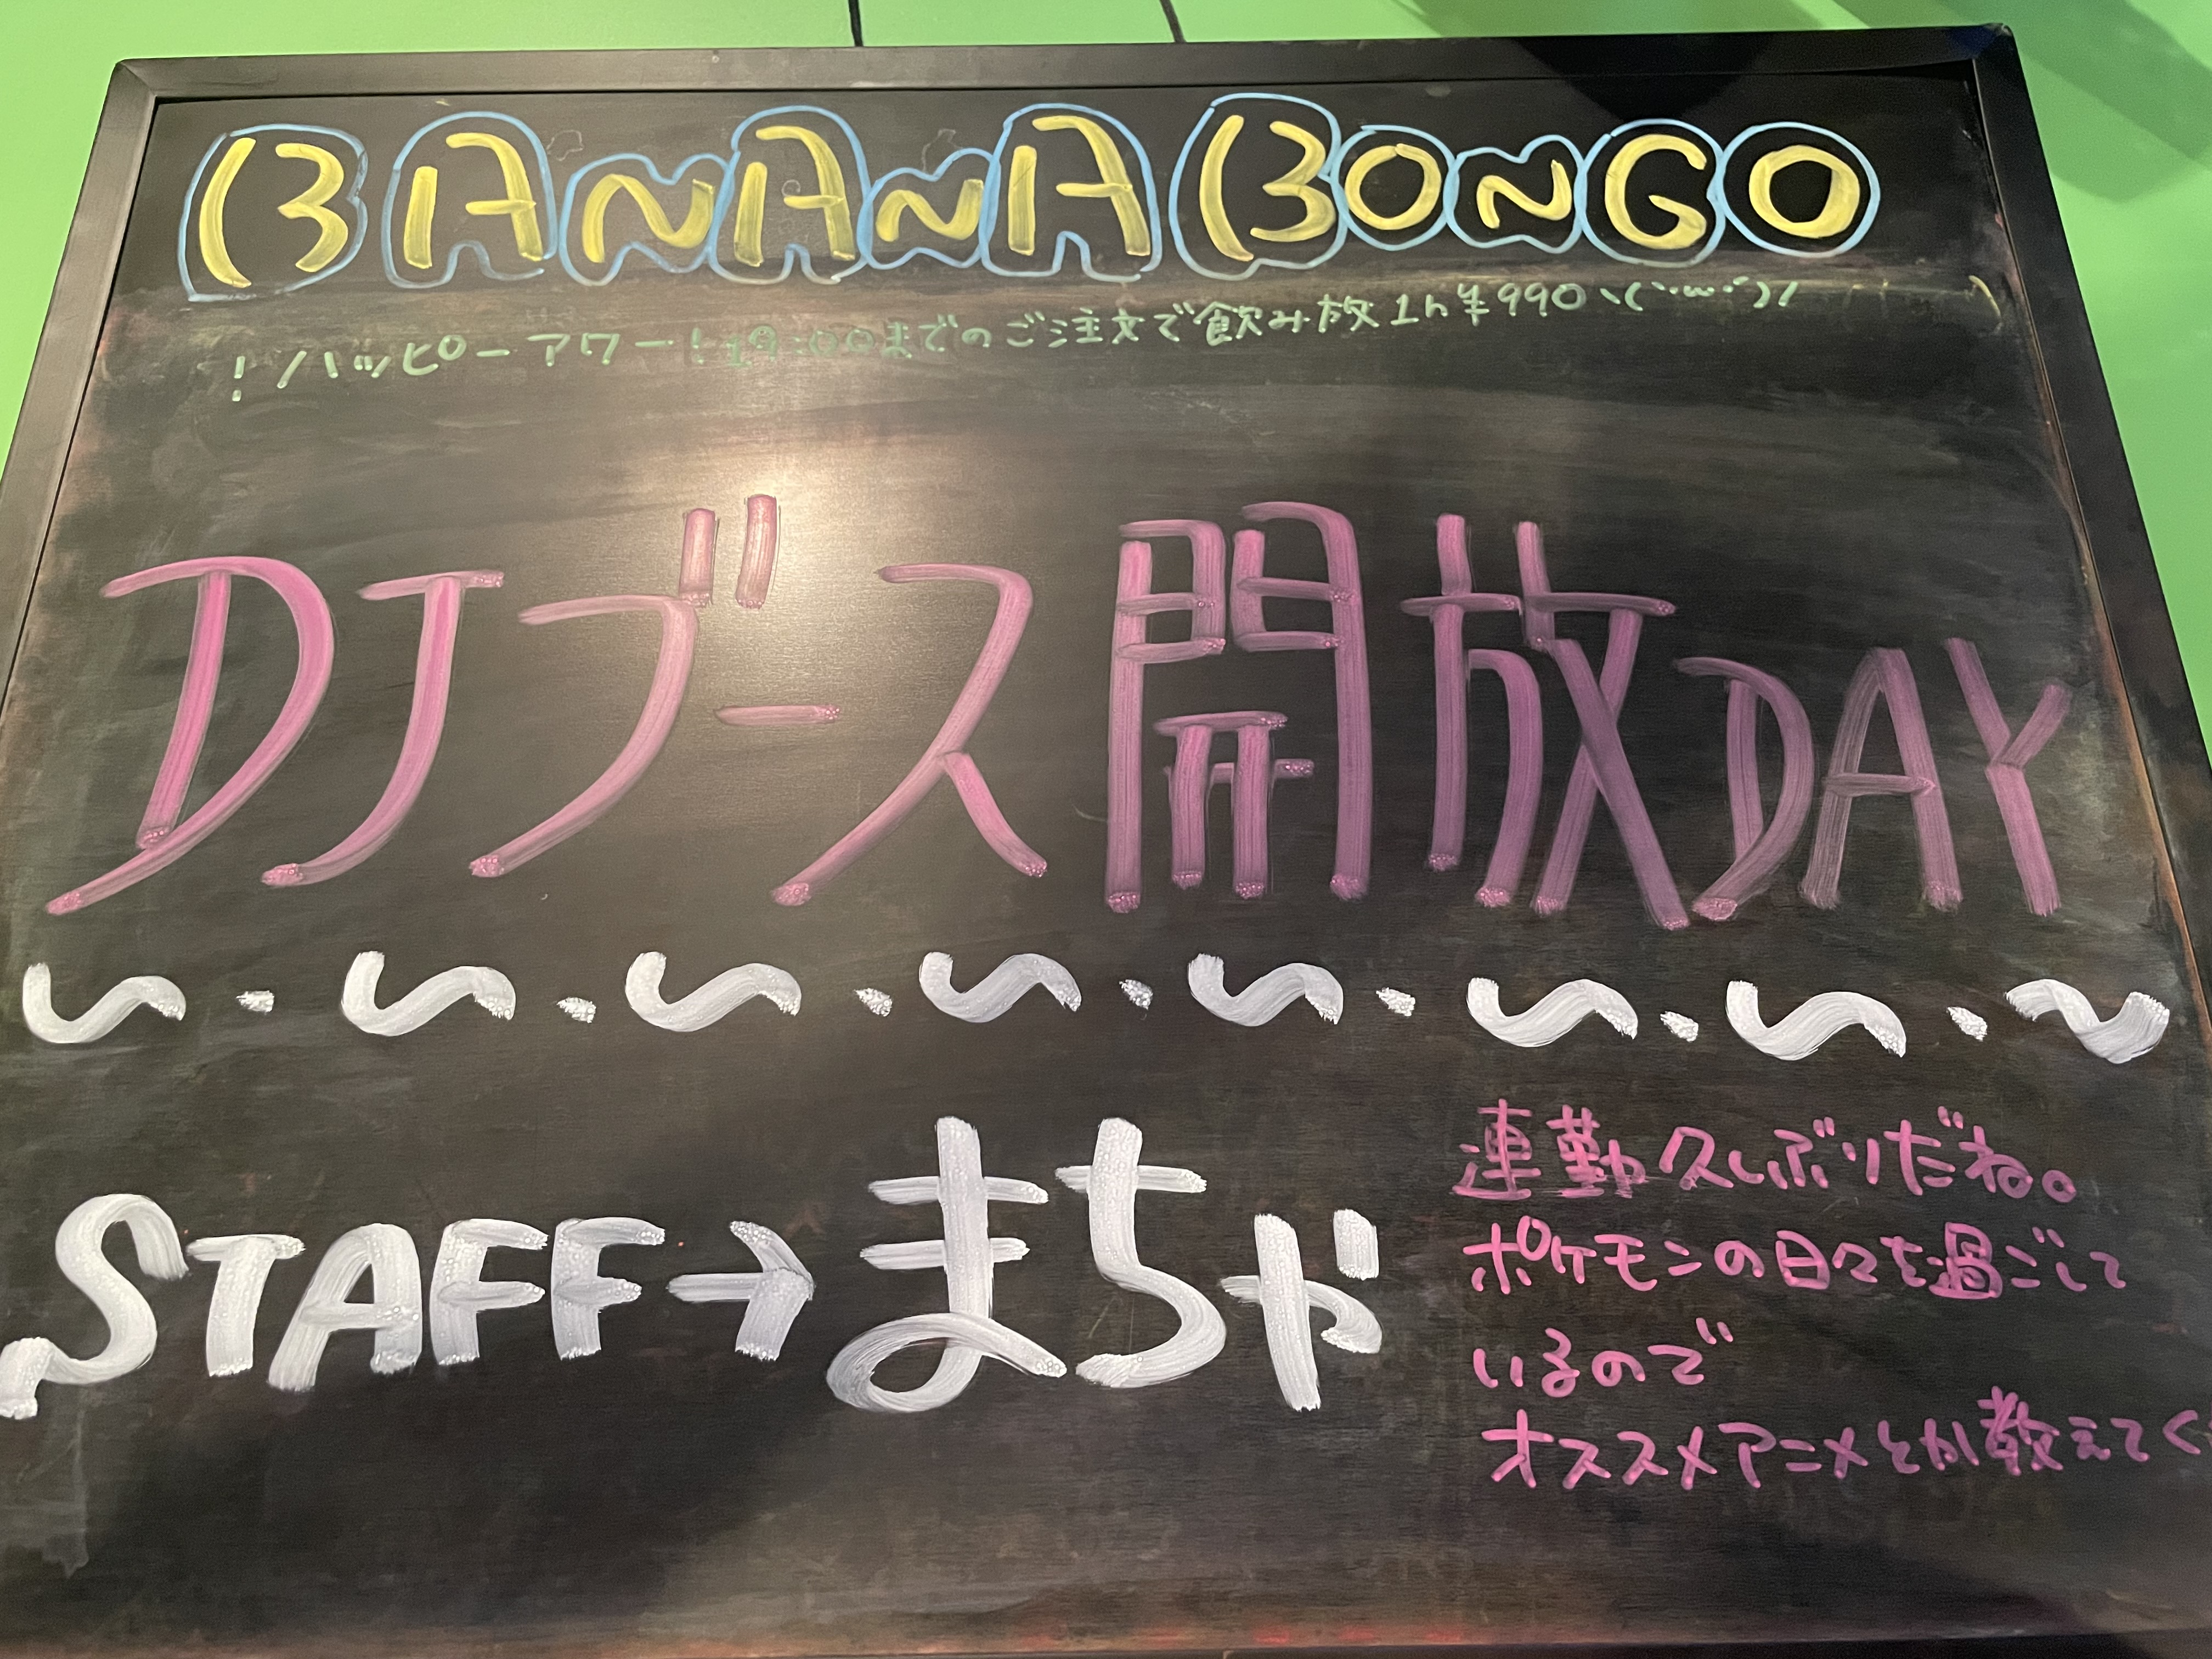 BANANA BONGO
！ハッピーアワー！19:00までのご注文で飲み放1h¥990ヽ(`･ω･´)ﾉ
DJブース開放DAY
STAFF→まちゃ
連勤久しぶりだね。
ポケモンの日々を過ごして
いるので
オススメアニメとか教えてく